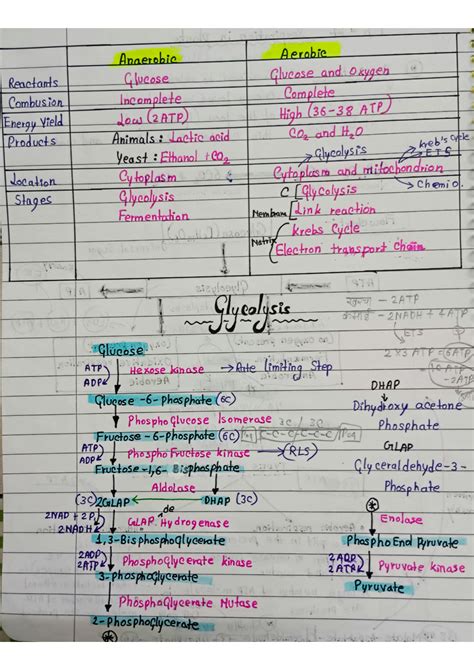 Anaerobic Aerobic
Reactants Glucose Glucose and Oxygen
Combusion Incomplete Complete
Energy Yield Low (2ATP) High (36-38 ATP)
Products Animals: Lactic acid CO2 and H2O
Yeast: Ethanol + CO2 Glycolysis kreb's cycle
ETS
Location Cytoplasm Cytoplasm and mitochondrion
Chemio
Stages Glycolysis C [Glycolysis
Fermentation Membrane [Link reaction
Matrix Krebs Cycle
Electron transport Chain
Glycolysis
- 2ATP
- 2NADH + 4ATP
ETS
2x3 ATP = 6ATP
Glucose
ATP Hexose kinase → Rate limiting Step
ADP
Glucose-6-phosphate (6C)
Phospho Glucose Isomerase
Fructose-6-phosphate (6C)
ATP Phospho Fructose kinase → (RLS)
ADP
Fructose-1,6-Bisphosphate
Aldolase
(3C) 2GLAP DHAP (3C)
2NAD + 2Pi de
2NADH GLAP Hydrogenase
1,3-BisphosphoGlycerate
2ADP Phosphoglycerate kinase
2ATP
3-phosphoGlycerate
PhosphoGlycerate Mutase
2-PhosphoGlycerate
DHAP
Dihydroxy acetone
Phosphate
GLAP
Glyceraldehyde-3-
Phosphate
Enolase
PhosphoEnol Pyruvate
2ADP Pyruvate kinase
2ATP
Pyruvate